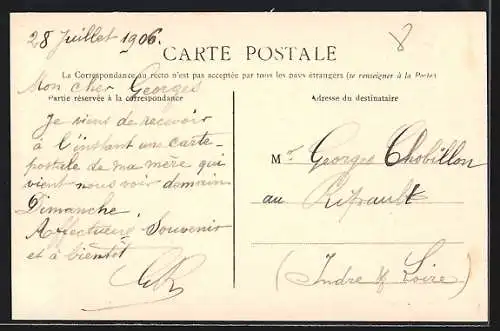 28 Juillet 1906.
8
CARTE POSTALE
La Correspondance au recto n'est pas acceptée par tous les pays étrangers (se renseigner à la Poste)
Mon cher Georges
Partie réservée à la correspondance
Je viens de recevoir
à l'instant une carte-
postale de ma mère qui
vient nous voir demain
Dimanche.
Affectueux Souvenir
et à bientôt
Adresse du destinataire
Mr. Georges Chobillon
au Ripault
(Indre & Loire)